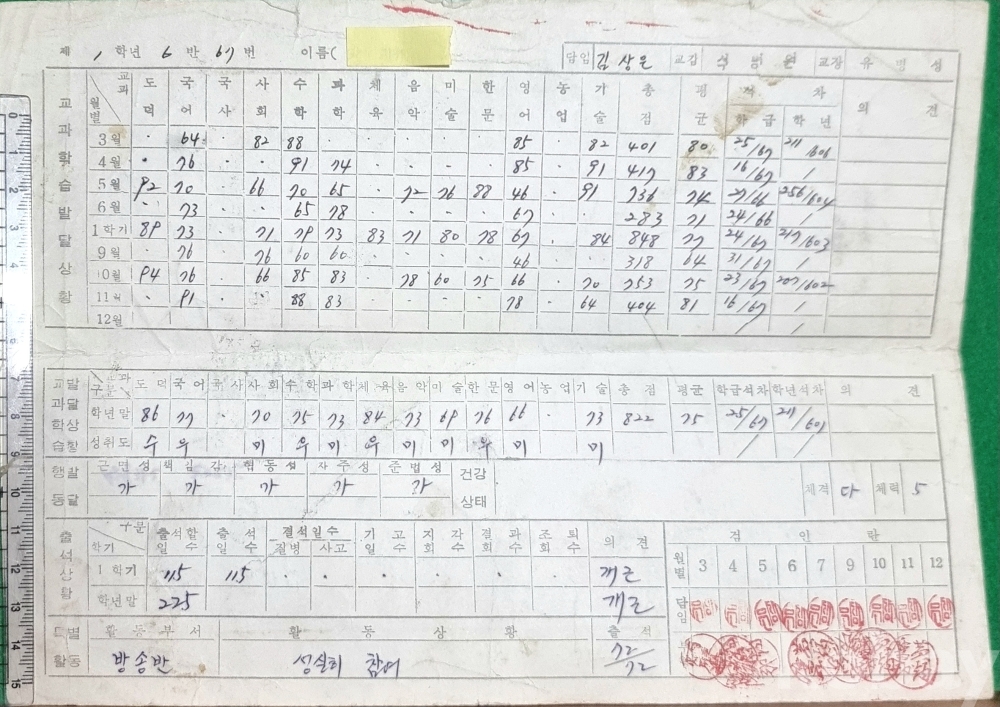 제 1 학년 6 반 67 번 이름( 담임 김상은 교감 석병완 교장 유명성
교과 월별 도덕 국어 국사 사회 수학 과학 체육 음악 미술 한문 영어 농업 기술 총점 평균 석차 학급 학년 의견
교과학습발달상황
3월 · 64 · 82 88 · · · · · 85 · 82 401 80 25/67 211/606
4월 · 76 · · 91 74 · · · · 85 · 91 417 83 16/67 /
5월 92 70 · 66 70 65 · 72 76 88 46 · 91 736 74 27/66 256/604
6월 · 73 · · 65 78 · · · · 67 · · 283 71 24/66 /
1학기 89 73 · 71 79 73 83 71 80 78 67 · 84 848 77 24/67 217/603
9월 · 76 · 76 60 60 · · · · 46 · · 318 64 31/67 /
10월 94 76 · 66 85 83 · 78 60 75 66 · 70 753 75 23/67 207/602
11월 · 91 · · 88 83 · · · · 78 · 64 404 81 16/67 /
12월 / /
교과학습 발달상황 구분 교과 도덕 국어 국사 사회 수학 과학 체육 음악 미술 한문 영어 농업 기술 총점 평균 학급석차 학년석차 의견
학년말 86 77 · 70 75 73 84 73 69 76 66 · 73 822 75 25/67 211/601
성취도 수 우 미 우 미 우 미 미 우 미 미 / /
행동발달 근면성 책임감 협동성 자주성 준법성 건강상태
가 가 가 가 가 체격 다 체력 5
출석상황 구분 학기 출석할일수 출석일수 결석일수 질병 사고 기고일수 지각회수 결과회수 조퇴회수 의견
1학기 115 115 · · · · · · 개근
학년말 225 개근
검인란
월별 3 4 5 6 7 9 10 11 12
담임
특별활동 활동부서 활동상황 출석
방송반 성실히 참여 72/72